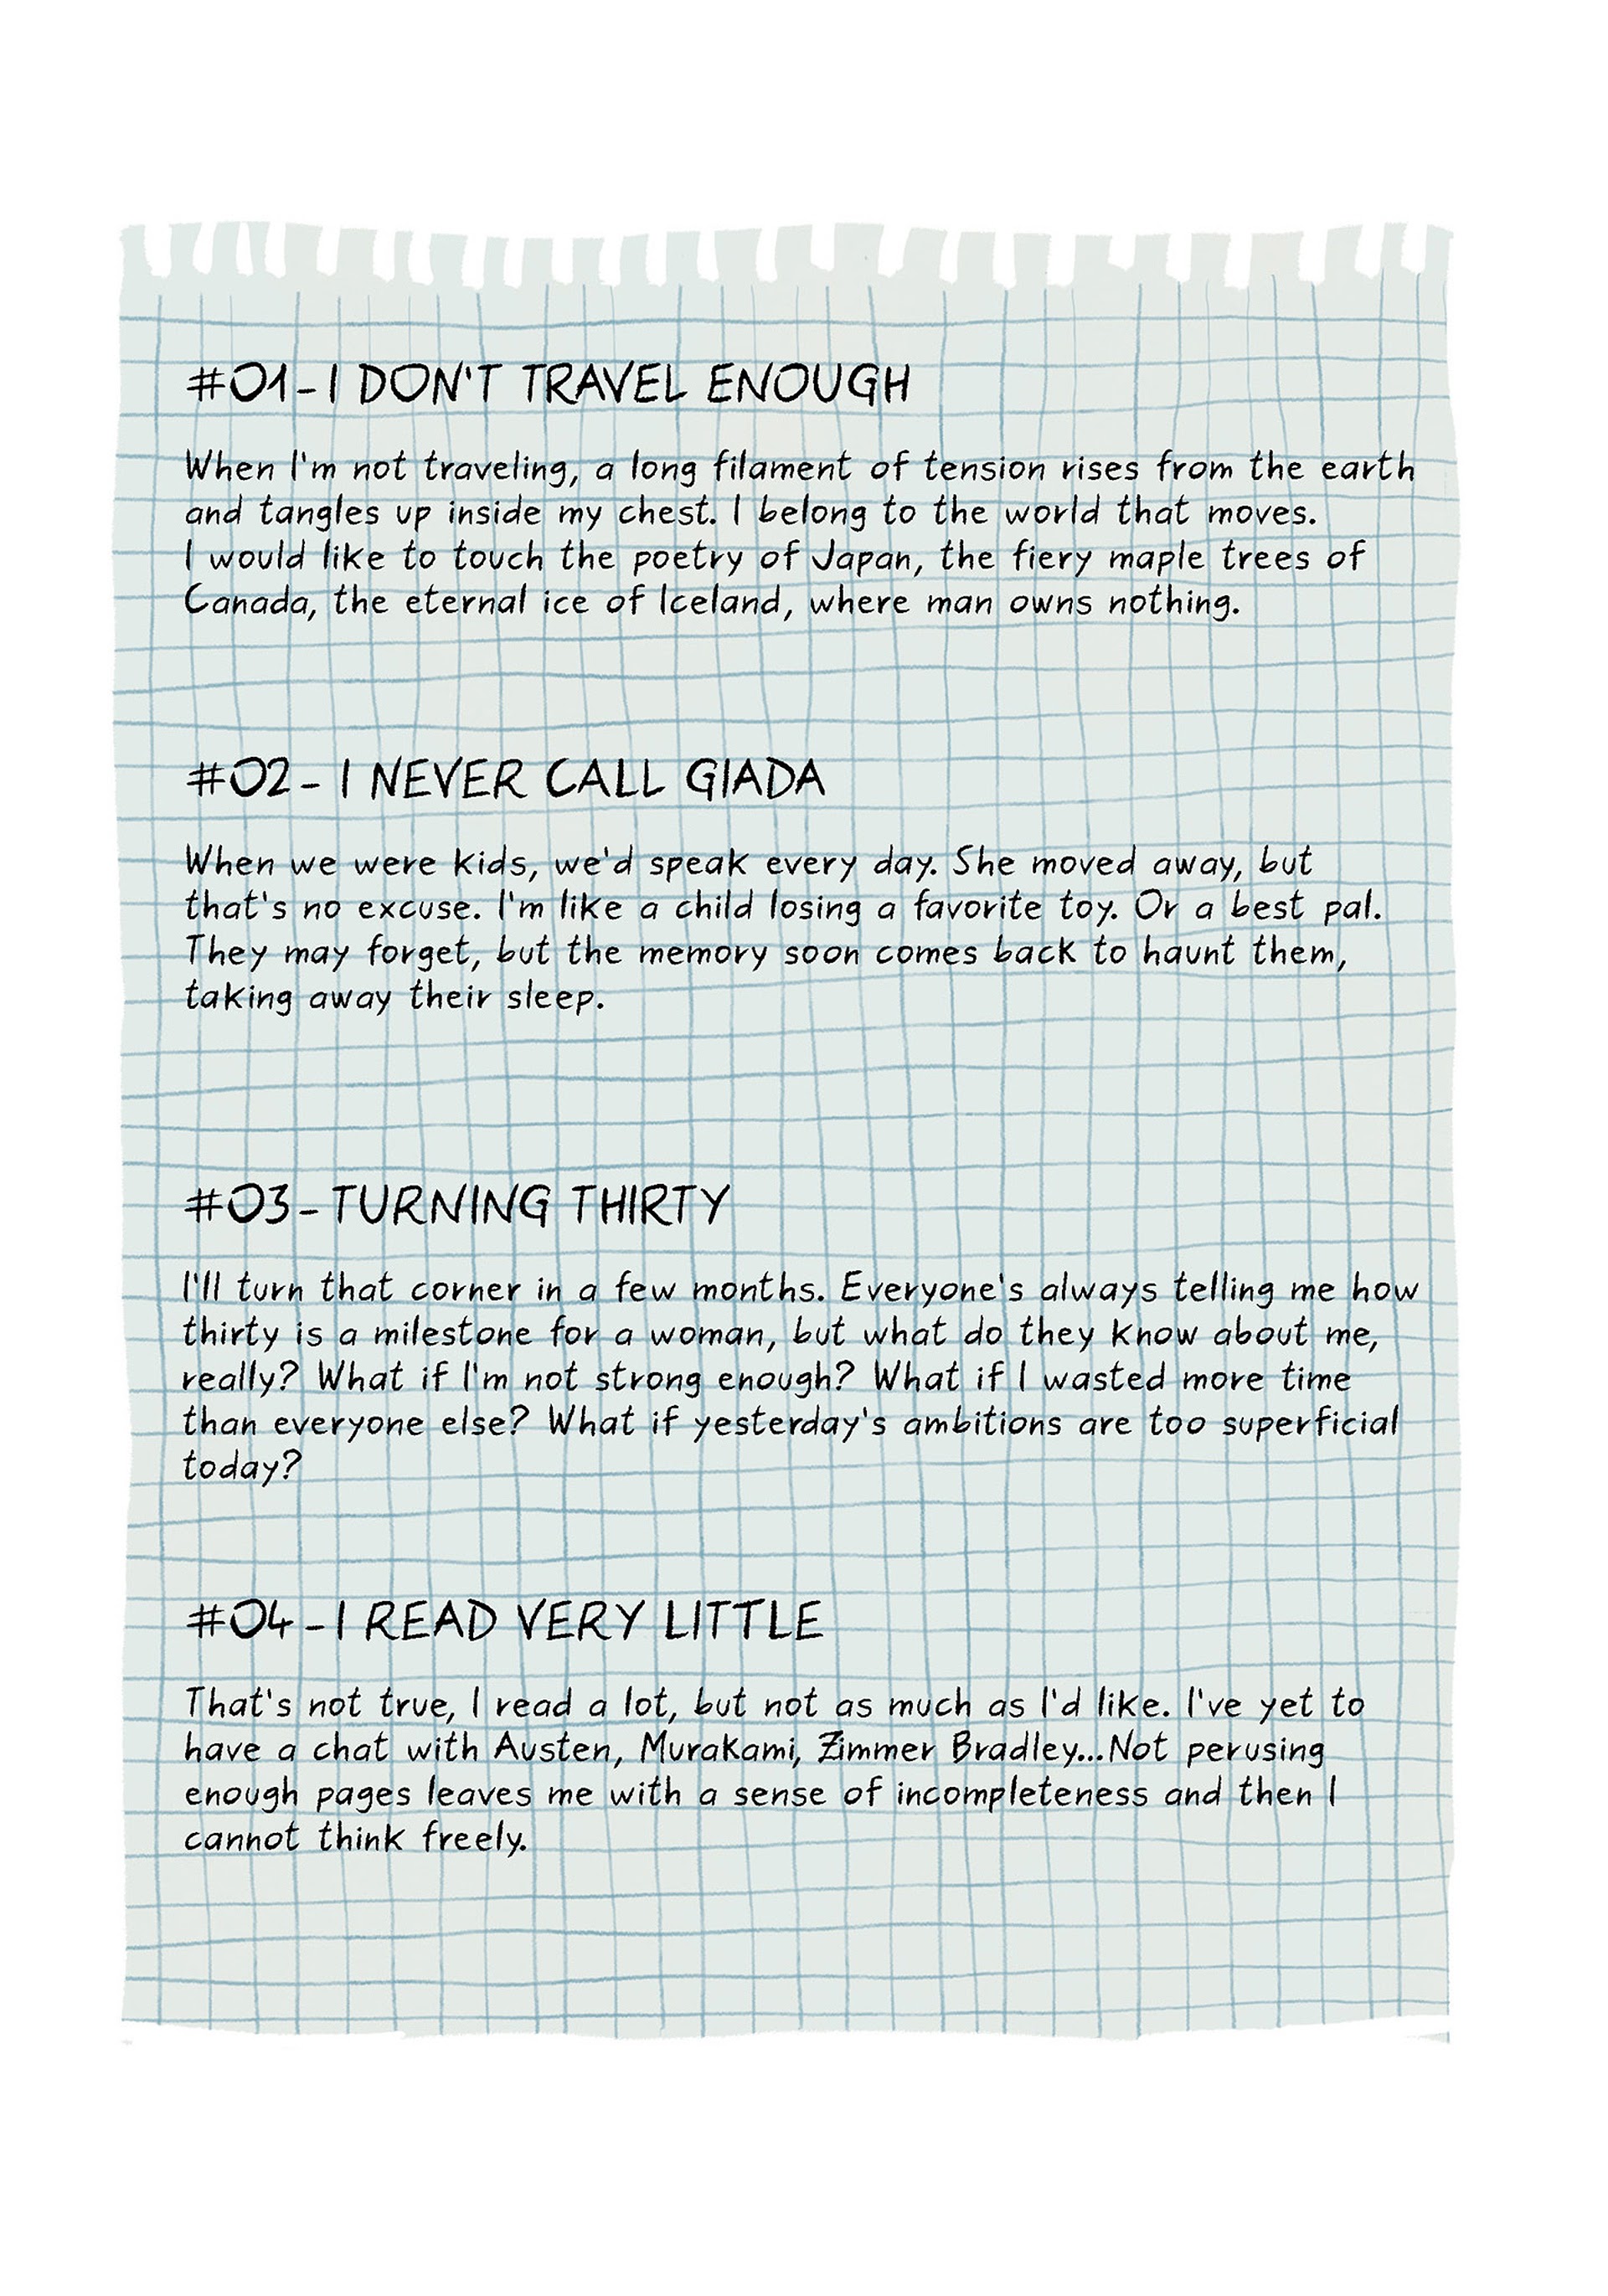 #01-I DON'T TRAVEL ENOUGH
When I'm not traveling, a long filament of tension rises from the earth
and tangles up inside my chest. I belong to the world that moves.
I would like to touch the poetry of Japan, the fiery maple trees of
Canada, the eternal ice of Iceland, where man owns nothing.
#02- I NEVER CALL GIADA
When we were kids, we'd speak every day. She moved away, but
that's no excuse. I'm like a child losing a favorite toy. Or a best pal.
They may forget, but the memory soon comes back to haunt them,
taking away their sleep.
#03-TURNING THIRTY
I'll turn that corner in a few months. Everyone's always telling me how
thirty is a milestone for a woman, but what do they know about me,
really? What if I'm not strong enough? What if I wasted more time
than everyone else? What if yesterday's ambitions are too superficial
today?
#04-I READ VERY LITTLE
That's not true, I read a lot, but not as much as I'd like. I've yet to
have a chat with Austen, Murakami, Zimmer Bradley...Not perusing
enough pages leaves me with a sense of incompleteness and then I
cannot think freely.